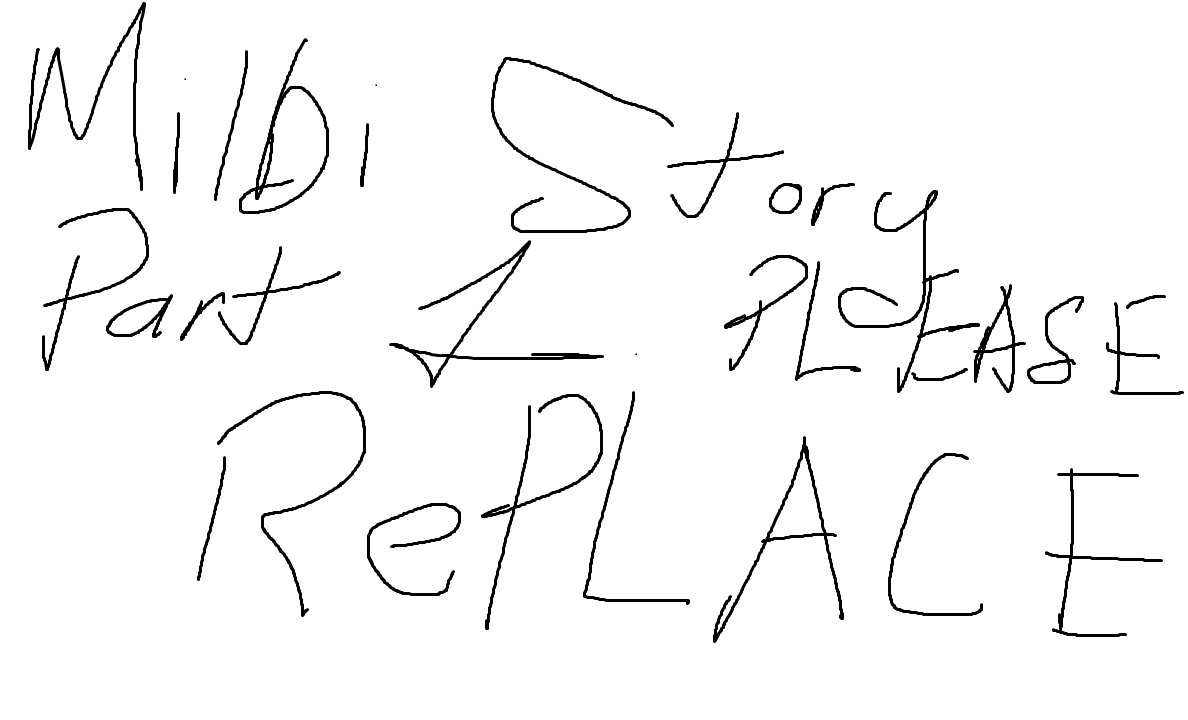 Milbi Story
Part 1 PLEASE
RePLACE